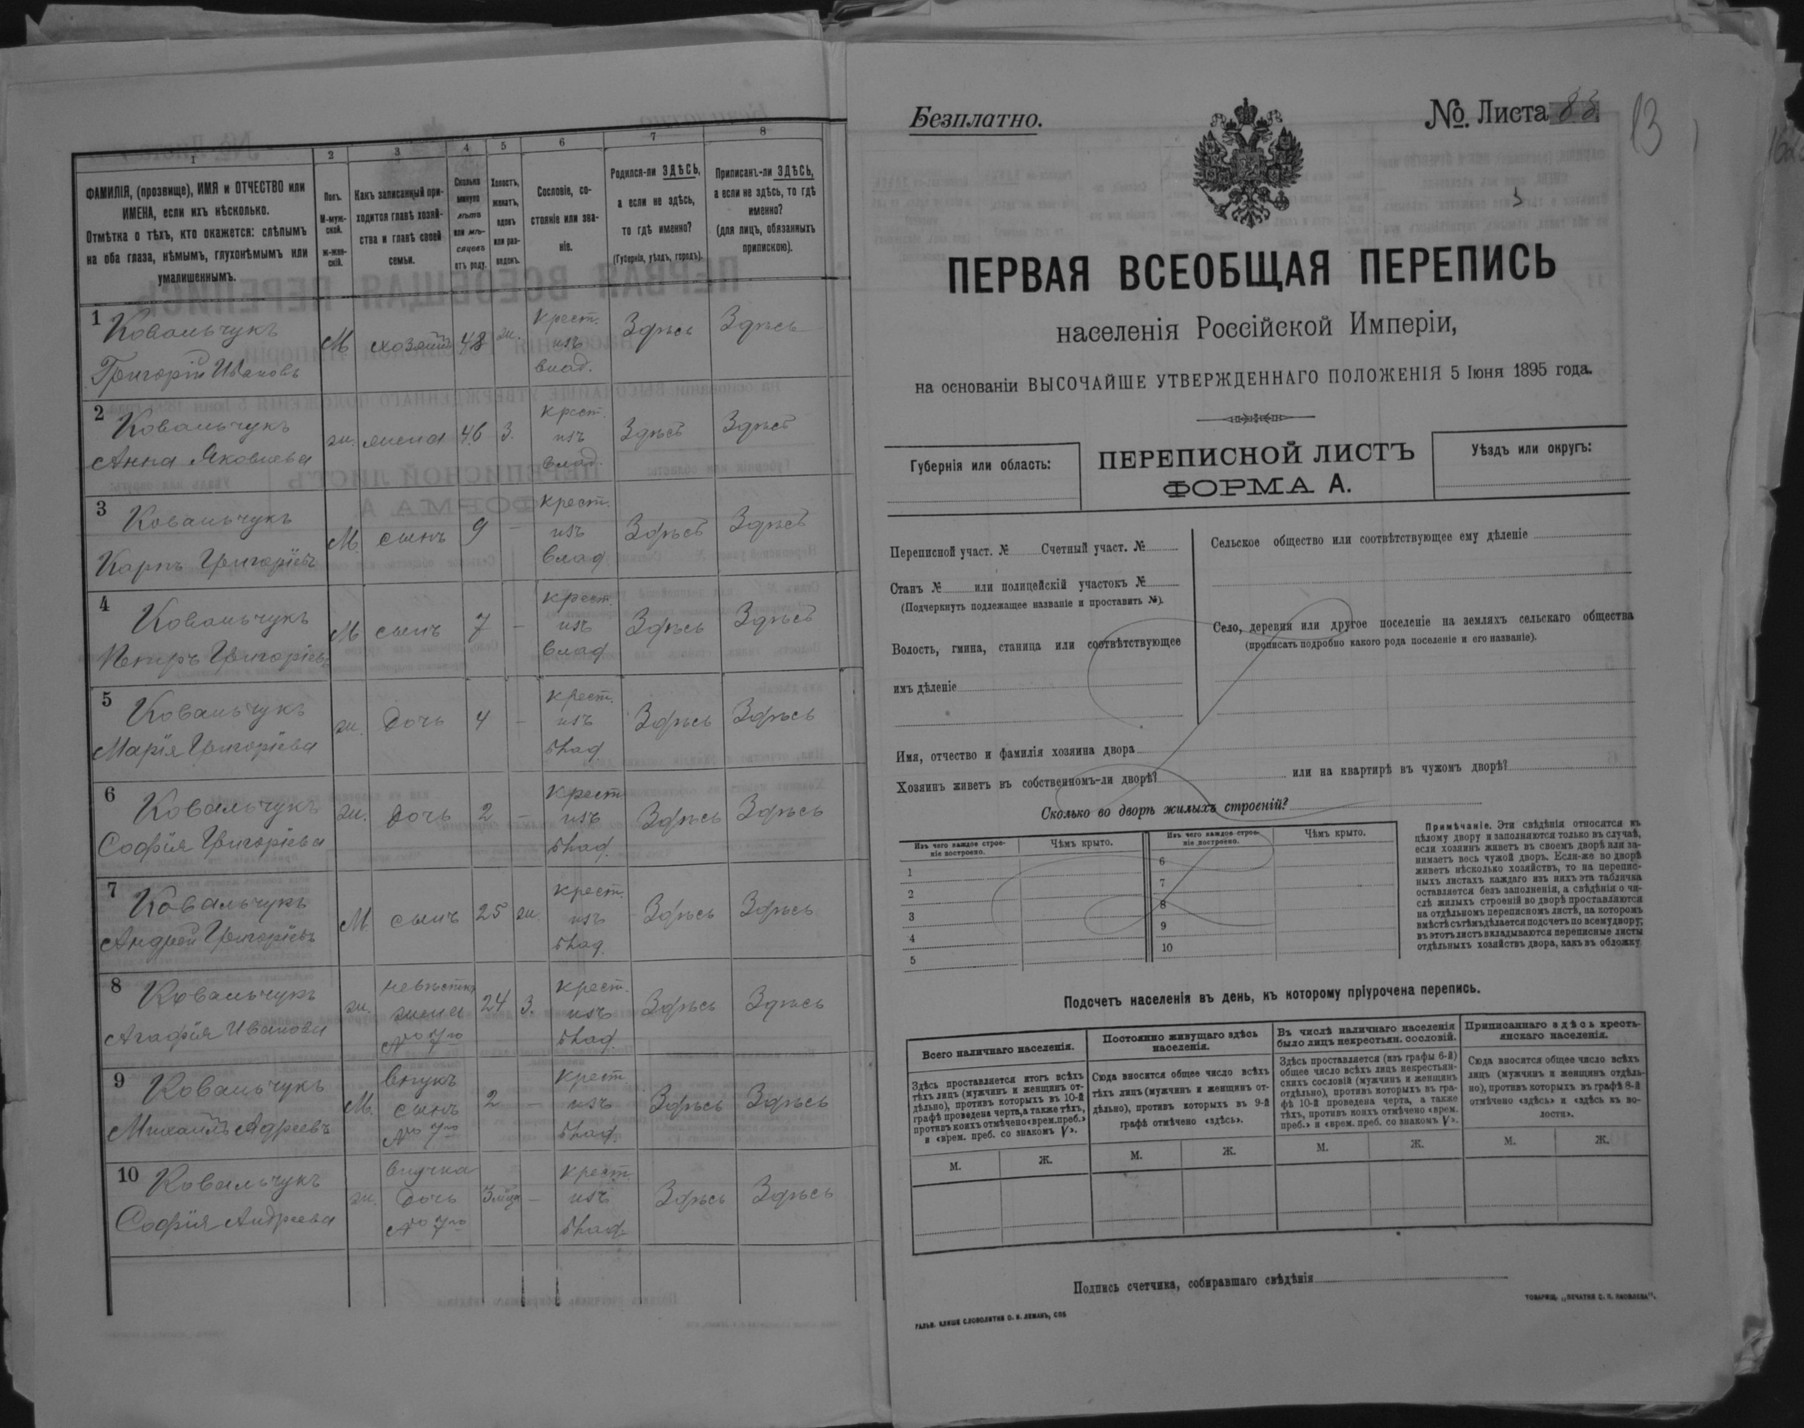 1
2
3
4
5
6
7
8
ФАМИЛІЯ, (прозвище), ИМЯ и ОТЧЕСТВО или
ИМЕНА, если ихъ нѣсколько.
Отмѣтка о тѣхъ, кто окажется: слѣпымъ
на оба глаза, нѣмымъ, глухонѣмымъ или
умалишеннымъ.
Полъ.
М-муж-
ской.
Ж-жен-
скій.
Какъ записанный при-
ходится главѣ хозяй-
ства и главѣ своей
семьи.
Сколько
минуло
лѣтъ
или мѣ-
сяцевъ
отъ роду.
Холостъ,
женатъ,
вдовъ
или раз-
веденъ.
Сословіе, со-
стояніе или зва-
ніе.
Родился-ли ЗДѢСЬ,
а если не здѣсь,
то гдѣ именно?
(Губернія, уѣздъ, городъ).
Приписанъ-ли ЗДѢСЬ,
а если не здѣсь, то гдѣ
именно?
(для лицъ, обязанныхъ
припискою).
1 Ковальчукъ
Григорій Ивановъ
М хозяинъ 48 ж. крест. изъ влад. Здѣсь Здѣсь
2 Ковальчукъ
Анна Яковлева
ж. жена 46 з. крест. изъ влад. Здѣсь Здѣсь
3 Ковальчукъ
Карпъ Григоріевъ
М. сынъ 9 – крест. изъ влад Здѣсь Здѣсь
4 Ковальчукъ
Петръ Григоріевъ
М сынъ 7 – крест. изъ влад Здѣсь Здѣсь
5 Ковальчукъ
Марія Григоріева
ж. дочь 4 – крест. изъ влад Здѣсь Здѣсь
6 Ковальчукъ
Софія Григоріева
ж. дочь 2 – крест изъ влад. Здѣсь Здѣсь
7 Ковальчукъ
Андрей Григоріевъ
М сынъ 25 ж. крест. изъ влад. Здѣсь Здѣсь
8 Ковальчукъ
Агафія Иванова
ж. невѣстка жена № 7го 24 з. крест. изъ влад. Здѣсь Здѣсь
9 Ковальчукъ
Михаилъ Адреевъ
М. внукъ сынъ № 7го 2 – крест изъ влад. Здѣсь Здѣсь
10 Ковальчукъ
Софія Андреева
ж. внучка дочь № 7го 3 мѣц – крест изъ влад. Здѣсь Здѣсь
Безплатно.
№ Листа 83
13
ПЕРВАЯ ВСЕОБЩАЯ ПЕРЕПИСЬ
населенія Россійской Имперіи,
на основаніи ВЫСОЧАЙШЕ УТВЕРЖДЕННАГО ПОЛОЖЕНІЯ 5 Іюня 1895 года.
Губернія или область:
ПЕРЕПИСНОЙ ЛИСТЪ
ФОРМА А.
Уѣздъ или округъ:
Переписной участ. № Счетный участ. №
Станъ № или полицейскій участокъ №
(Подчеркнуть подлежащее названіе и проставить №).
Волость, гмина, станица или соотвѣтствующее
имъ дѣленіе
Сельское общество или соотвѣтствующее ему дѣленіе
Село, деревня или другое поселеніе на земляхъ сельскаго общества
(прописать подробно какого рода поселеніе и его названіе).
Имя, отчество и фамилія хозяина двора
Хозяинъ живетъ въ собственномъ-ли дворѣ? или на квартирѣ въ чужомъ дворѣ?
Сколько во дворѣ жилыхъ строеній?
Изъ чего каждое строе-
ніе построено.
Чѣмъ крыто.
Изъ чего каждое строе-
ніе построено.
Чѣмъ крыто.
1
2
3
4
5
6
7
8
9
10
Примѣчаніе. Эти свѣдѣнія относятся къ
цѣлому двору и заполняются только въ случаѣ,
если хозяинъ живетъ въ своемъ дворѣ или за-
нимаетъ весь чужой дворъ. Если-же во дворѣ
живетъ нѣсколько хозяйствъ, то на перепис-
ныхъ листахъ каждаго изъ нихъ эта табличка
оставляется безъ заполненія, а свѣдѣнія о чи-
слѣ жилыхъ строеній во дворѣ проставляются
на отдѣльномъ переписномъ листѣ, на которомъ
вмѣстѣ съ тѣмъ дѣлается подсчетъ по всему двору;
въ этотъ листъ вкладываются переписные листы
отдѣльныхъ хозяйствъ двора, какъ въ обложку.
Подсчетъ населенія въ день, къ которому пріурочена перепись.
Всего наличнаго населенія.
Постоянно живущаго здѣсь
населенія.
Въ числѣ наличнаго населенія
было лицъ некрестьян. сословій.
Приписаннаго здѣсь кресть-
янскаго населенія.
Здѣсь проставляется итогъ всѣхъ
тѣхъ лицъ (мужчинъ и женщинъ от-
дѣльно), противъ которыхъ въ 10-й
графѣ проведена черта, а также тѣхъ,
противъ коихъ отмѣчено «врем. преб.»
и «врем. преб. со знакомъ V».
Сюда вносятъ общее число всѣхъ
тѣхъ лицъ (мужчинъ и женщинъ от-
дѣльно), противъ которыхъ въ 9-й
графѣ отмѣчено «здѣсь».
Здѣсь проставляется (изъ графы 6-й)
общее число всѣхъ лицъ некрестьян-
скихъ сословій (мужчинъ и женщинъ
отдѣльно), противъ которыхъ въ гра-
фѣ 10-й проведена черта, а также
тѣхъ, противъ коихъ отмѣчено «врем.
преб.» и «врем. преб. со знакомъ V».
Сюда вносятся общее число всѣхъ
лицъ (мужчинъ и женщинъ отдѣль-
но), противъ которыхъ въ графѣ 8-й
отмѣчено «здѣсь» и «здѣсь въ во-
лости».
М. Ж. М. Ж. М. Ж. М. Ж.
Подпись счетчика, собиравшаго свѣдѣнія
ГАЛЬВ. КЛИШЕ СЛОВОЛИТНИ О. И. ЛЕМАНЪ, СПБ
ТОВАРИЩ. „ПЕЧАТНЯ С. П. ЯКОВЛЕВА".